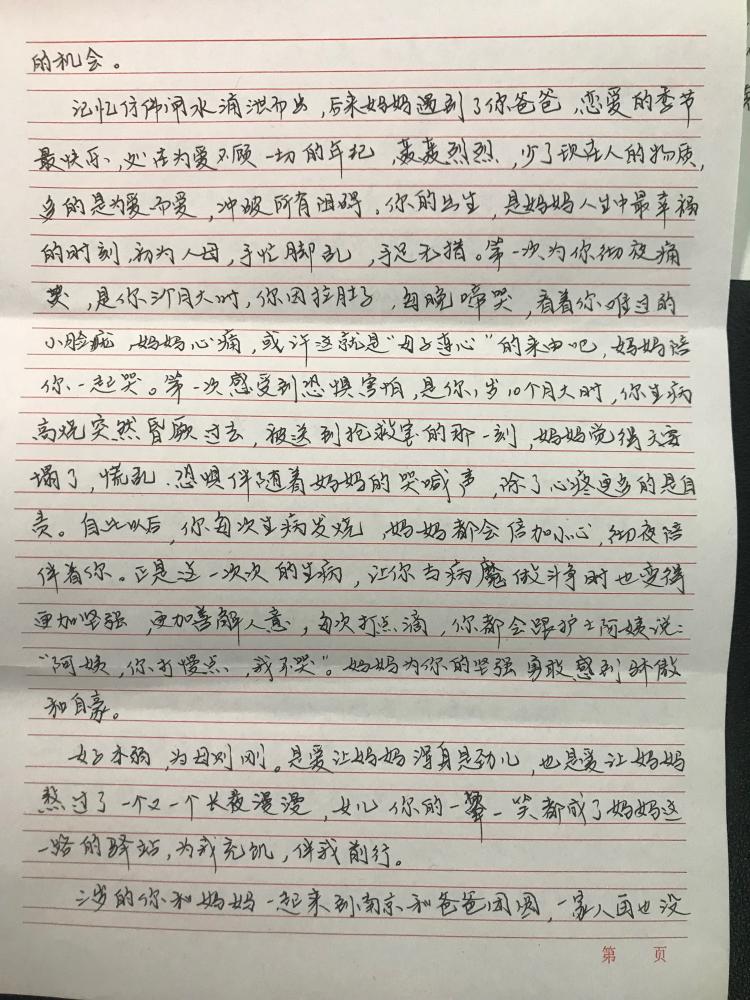 的机会。
记忆仿佛闸水滴泄而出，后来妈妈遇到了你爸爸，恋爱的季节
最快乐，处在为爱不顾一切的年纪，轰轰烈烈，少了现在人的物质，
多的是为爱而爱，冲破所有阻碍。你的出生，是妈妈人生中最幸福
的时刻，初为人母，手忙脚乱，手足无措。第一次为你彻夜痛
哭，是你3个月大时，你因拉肚子，每晚啼哭，看着你难过的
小脸庞，妈妈心痛，或许这就是“母子连心”的来由吧，妈妈陪
你一起哭。第一次感受到恐惧害怕，是你1岁10个月大时，你生病
高烧突然昏厥过去，被送到抢救室的那一刻，妈妈觉得天要
塌了，慌乱、恐惧伴随着妈妈的哭喊声，除了心疼更多的是自
责。自此以后，你每次生病发烧，妈妈都会倍加小心，彻夜陪
伴着你。正是这一次次的生病，让你与病魔做斗争时也变得
更加坚强，更加善解人意，每次打点滴，你都会跟护士阿姨说：
“阿姨，你打慢点，我不哭”。妈妈为你的坚强勇敢感到骄傲
和自豪。
女子本弱，为母则刚。是爱让妈妈浑身是劲儿，也是爱让妈妈
熬过了一个又一个长夜漫漫，女儿你的一颦一笑都成了妈妈这
一路的驿站，为我充饥，伴我前行。
三岁的你和妈妈一起来到南京和爸爸团圆，一家人再也没
第 页